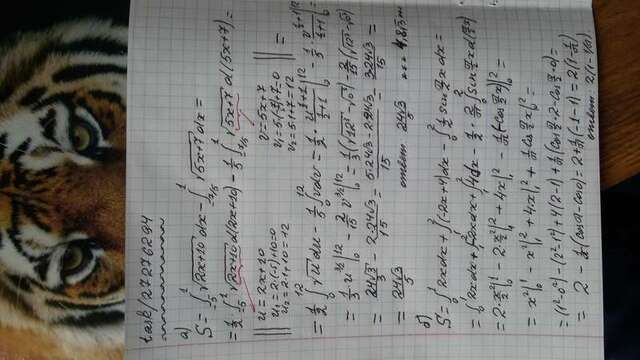 task/27276294
а)
S = ∫₋₅¹ √(2x+10) dx − ∫₋₇/₅¹ √(5x+7) dx =
= 1/2 ∫₋₅¹ √(2x+10) d(2x+10) − 1/5 ∫₋₇/₅¹ √(5x+7) d(5x+7) =
u = 2x+10 v = 5x+7
u₁ = 2·(-5)+10=0 v₁ = 5·(-7/5)+7=0
u₂ = 2·1+10=12 v₂ = 5·1+7=12 =
= 1/2 ∫₀¹² √u du − 1/5 ∫₀¹² √v dv = 1/2 · u^(1/2+1)/(1/2+1) |₀¹² − 1/5 · v^(1/2+1)/(1/2+1) |₀¹² =
= 1/3 · u^(3/2) |₀¹² − 2/15 v^(3/2) |₀¹² = 1/3 (√12³ − √0³) − 2/15 (√12³ − √0³)
= 24√3/3 − 2·24√3/15 = 5·24√3 − 2·24√3/15 = 3·24√3/15 =
= 24√3/5 ответ: 24√3/5
б)
S = ∫₀¹ 2x dx + ∫₁² (-2x+4) dx − ∫₀² 1/2 sin π/2 x dx =
= ∫₀¹ 2x dx + ∫₁² -2x dx + ∫₁² 4 dx − 1/2 · 2/π ∫₀² sin π/2 x d(π/2 x)
= 2·x²/2 |₀¹ − 2·x²/2 |₁² + 4x |₁² − 1/π (-cos π/2 x) |₀² =
= x² |₀¹ − x² |₁² + 4·x |₁² + 1/π cos π/2 x |₀² =
= (1²-0²) − (2²-1²) + 4(2-1) + 1/π (cos π/2 · 2 − cos π/2 · 0) =
= 2 − 1/π (cos π − cos 0) = 2 + 1/π (-1-1) = 2(1 − 1/π)
ответ: 2(1 − 1/π)